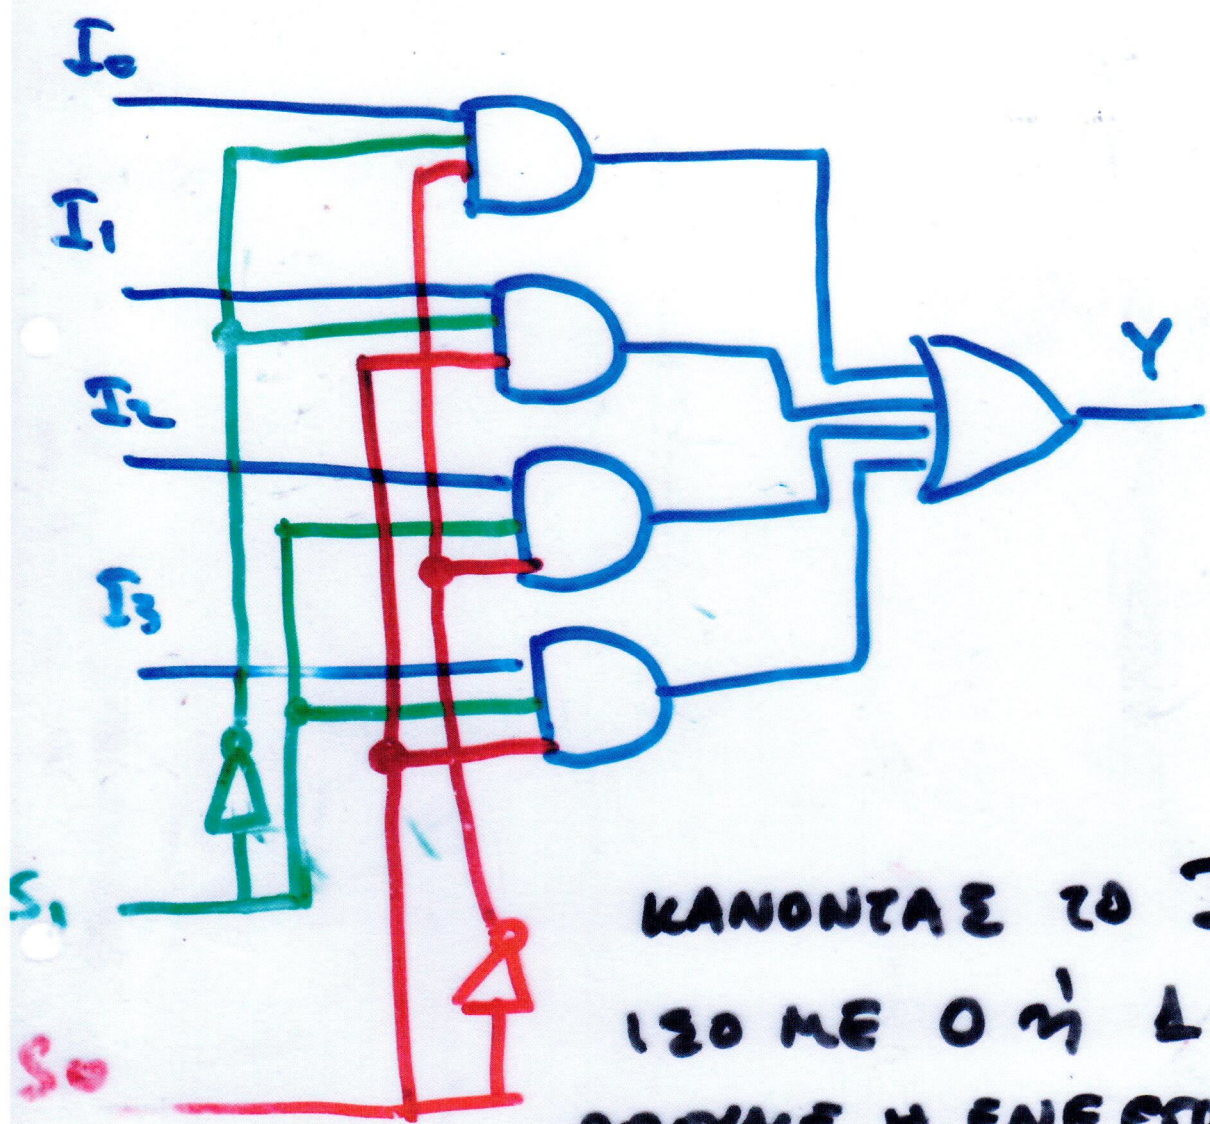 I0
I1
I2
I3
Y
S1
S0
ΚΑΝΟΝΤΑΣ ΤΟ I
ΙΣΟ ΜΕ 0 ή 1